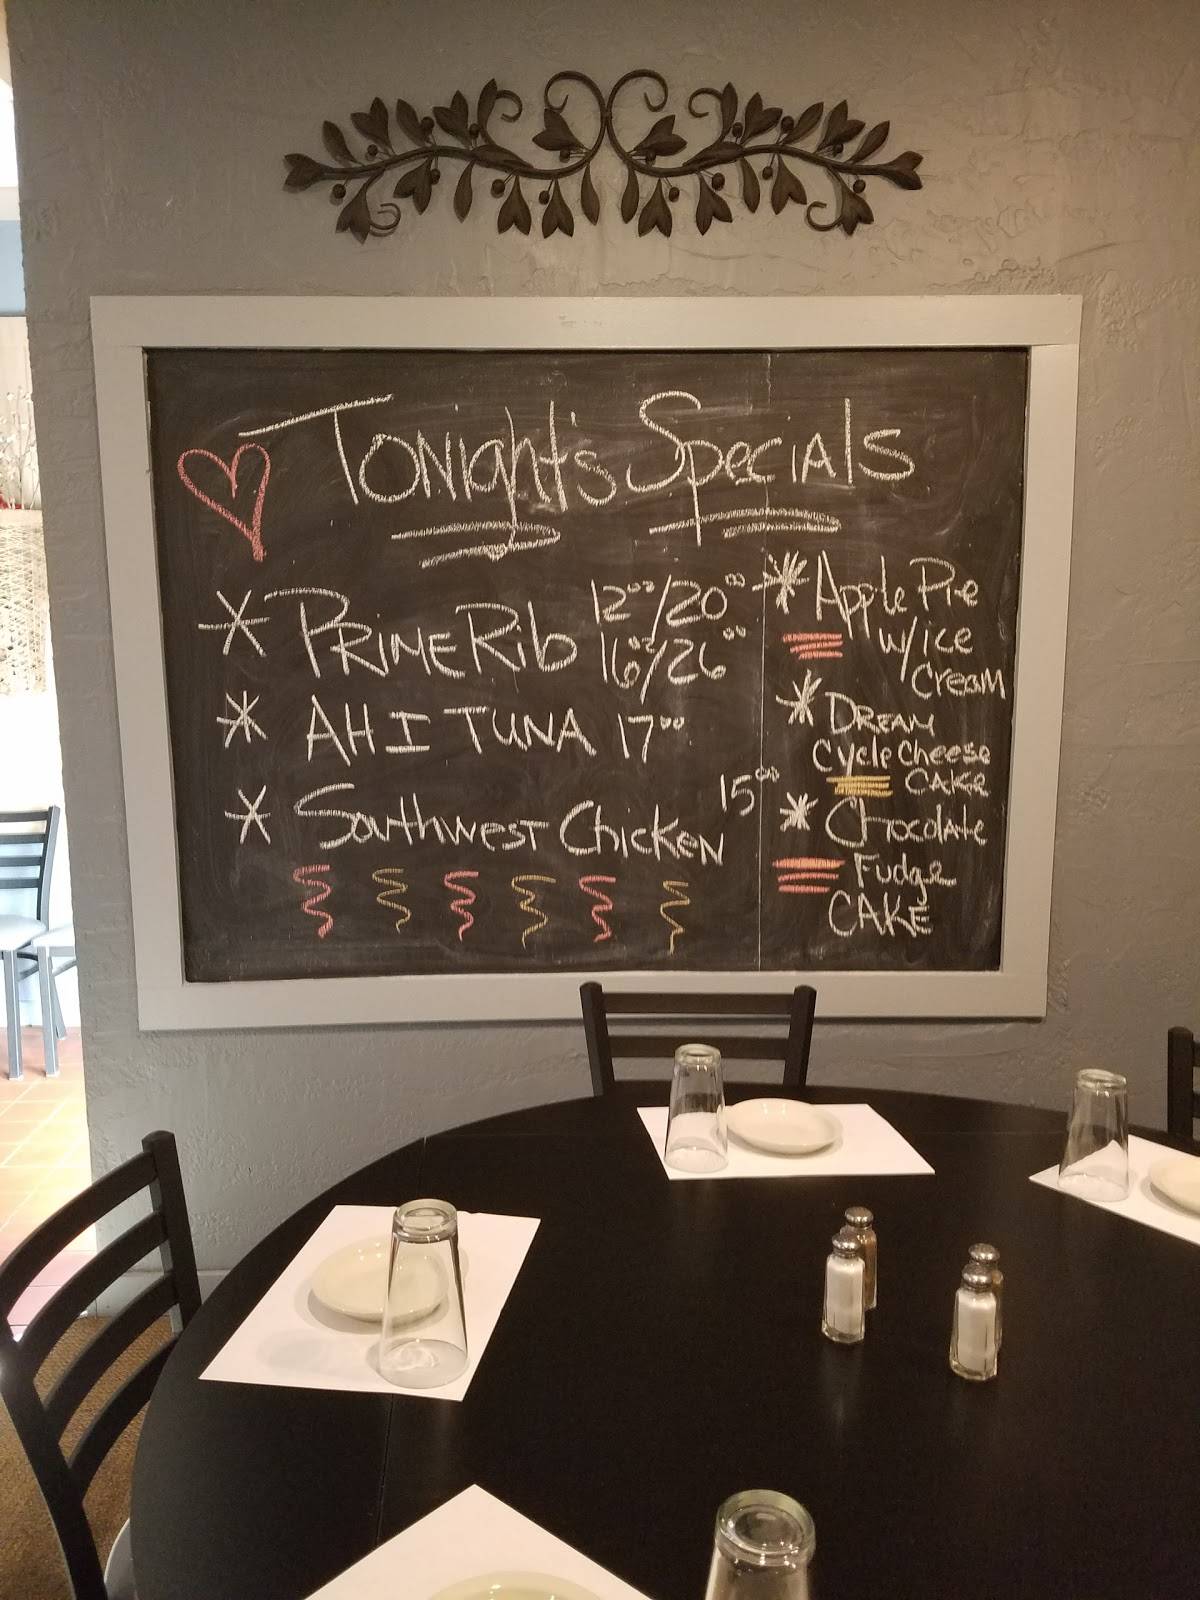 Tonight's Specials
* Prime Rib 12oz/20.00
16oz/26.00
* AHI TUNA 17.00
* Southwest Chicken 15.00
* Apple Pie
w/ice
Cream
* Dream
Cycle Cheese
CAKE
* Chocolate
Fudge
CAKE